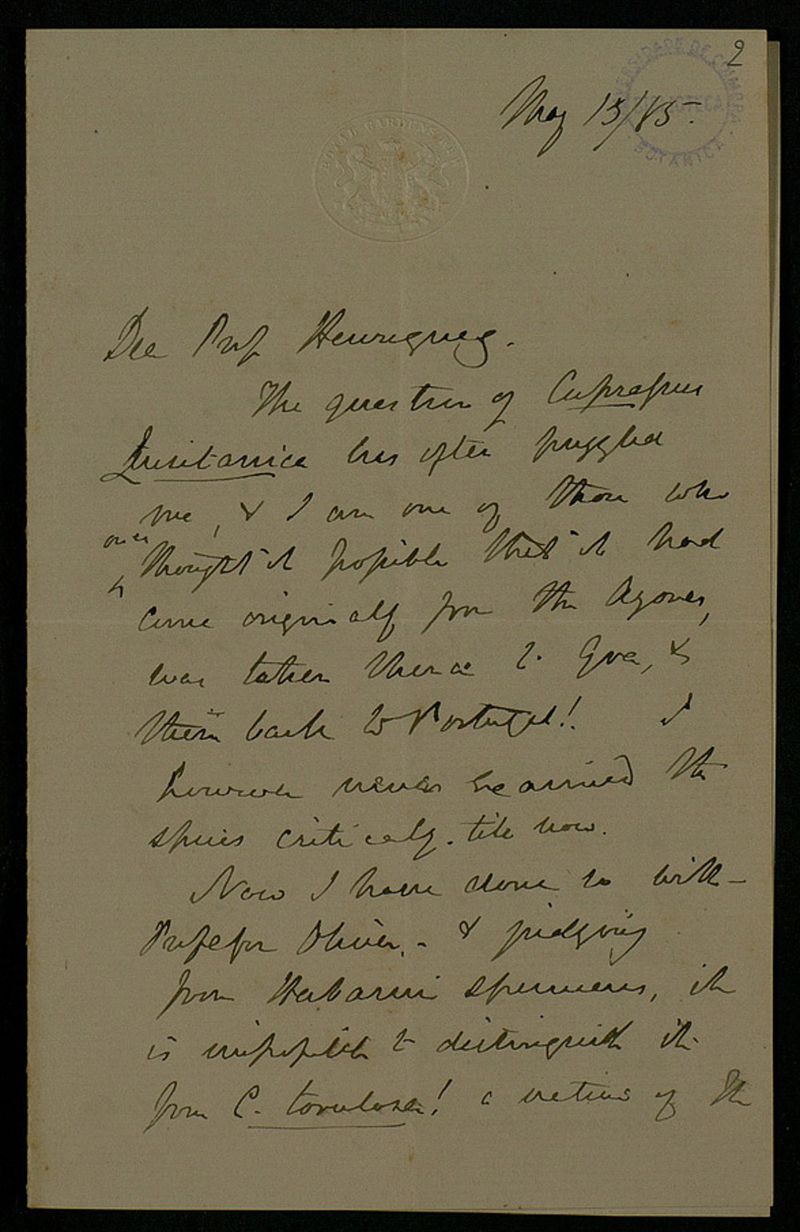 2
UNIVERSIDADE DE COIMBRA
BOTANICA
May 13/85.
ROYAL GARDENS KEW
Dea Prof Henriques.
The question of Cupressus
Lusitanica has often puzzled
me, & I am one of those who
once
thought it possible that it had
come originally from the Azores,
was taken thence to Goa, &
then back to Portugal! I
however never examined the
species critically till now.
Now I have done so with
Professor Oliver, - & judging
from Herbarium specimens, it
is impossible to distinguish it
from C. torulosa! a native of the